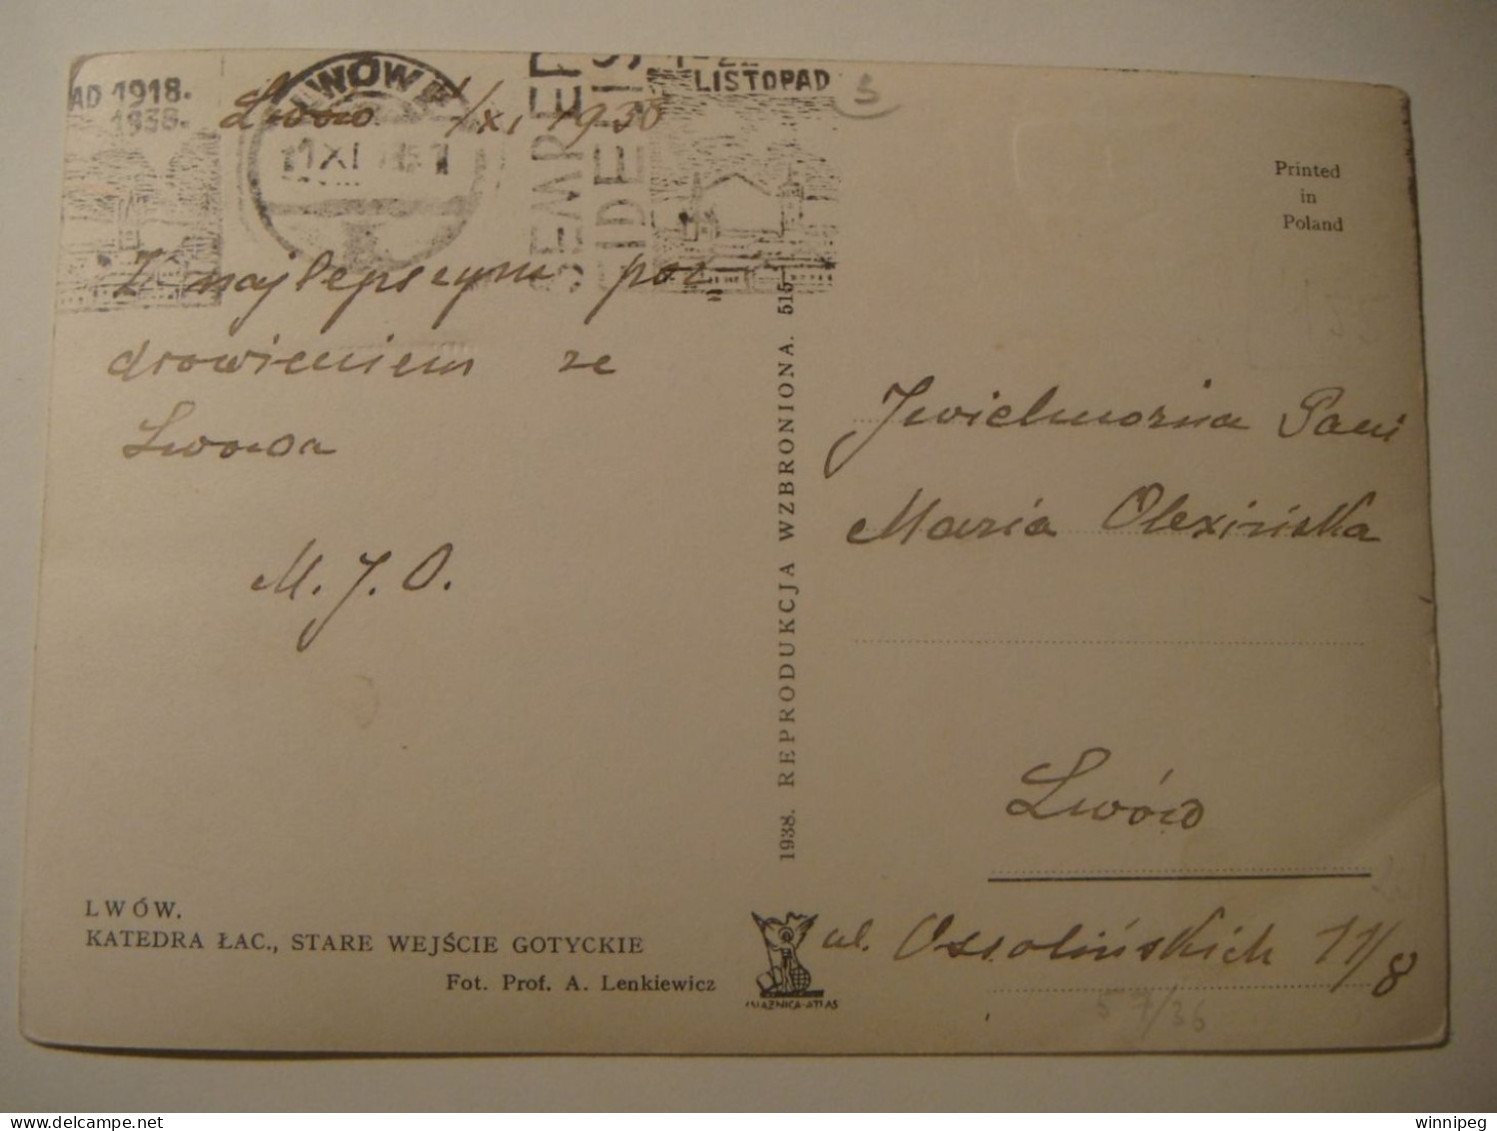 AD 1918.
1938.
LWÓW
11 XI
SEMPER
FIDELIS
1-22
LISTOPAD
Lwów 1/XI. 1938
5
Z najlepszym poz„
drowieniem ze
Lwowa
M. J. O.
LWÓW.
KATEDRA ŁAC., STARE WEJŚCIE GOTYCKIE
Fot. Prof. A. Lenkiewicz
1938. REPRODUKCJA WZBRONIONA. 515
KSIĄŻNICA-ATLAS
Printed
in
Poland
Jwielmożna Pani
Maria Olexińska
Lwów
ul. Ossolińskich 11/8
57/36
winnipeg